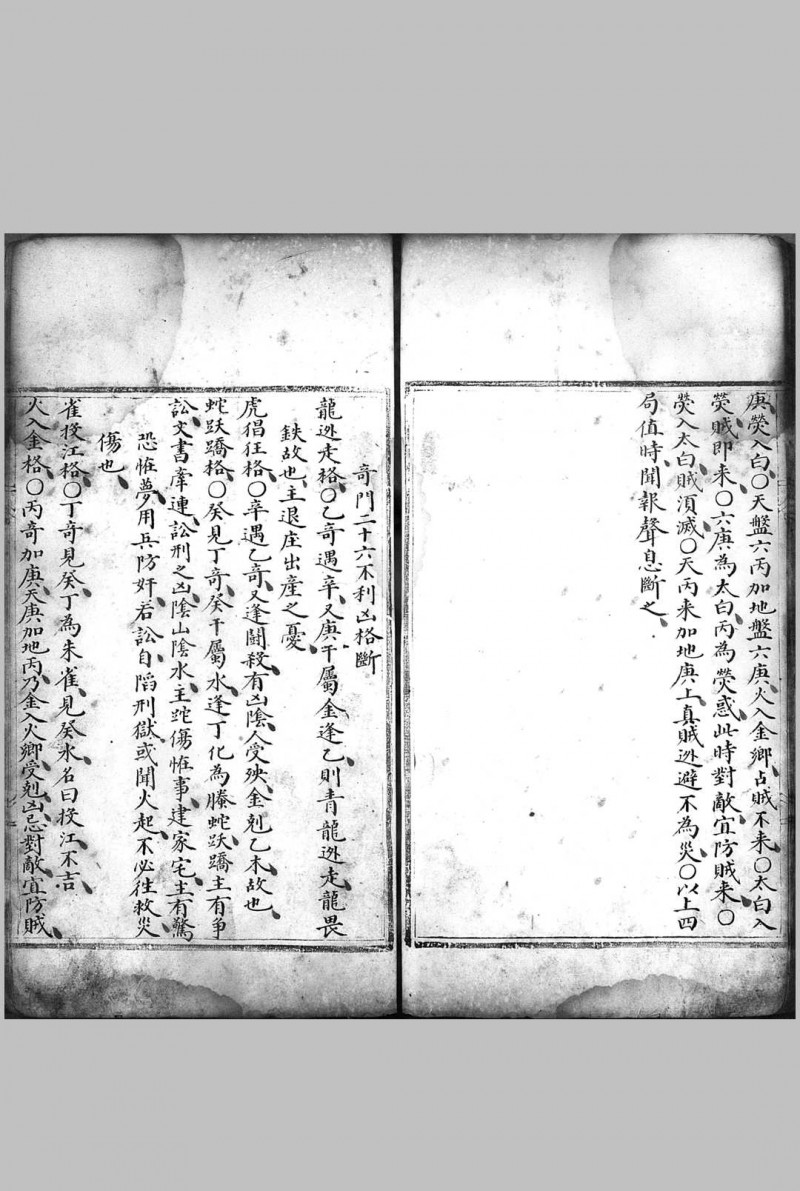 庚熒入白〇天盤六丙加地盤六庚火入金鄉占賊不来〇太白入
熒賊即来〇六庚為太白丙為熒惑此時對敵宜防賊来〇
熒入太白賊湏滅〇天丙来加地庚上真賊迯避不為災〇以上四
局值時聞報聲息斷之
奇門二十六不利凶格斷
龍迯走格〇乙奇遇辛又庚干屬金逢乙則青龍迯走龍畏
鉄故也主退庄出産之憂
虎猖狂格〇辛遇乙奇又逢鬪殺有凶陰人受殃金剋乙木故也
蛇跃蹻格〇癸見丁奇癸干屬水逢丁化為螣蛇跃蹻主有争
訟文書牽連訟刑之凶陰山陰水主蛇傷恠事建家宅主有驚
恐恠夢用兵防奸若訟自陷刑獄或聞火起不必往救災
傷也
雀投江格〇丁奇見癸丁為朱雀見癸水名曰投江不吉
火入金格〇丙奇加庚天庚加地丙乃金入火鄉受剋凶忌對敵宜防賊